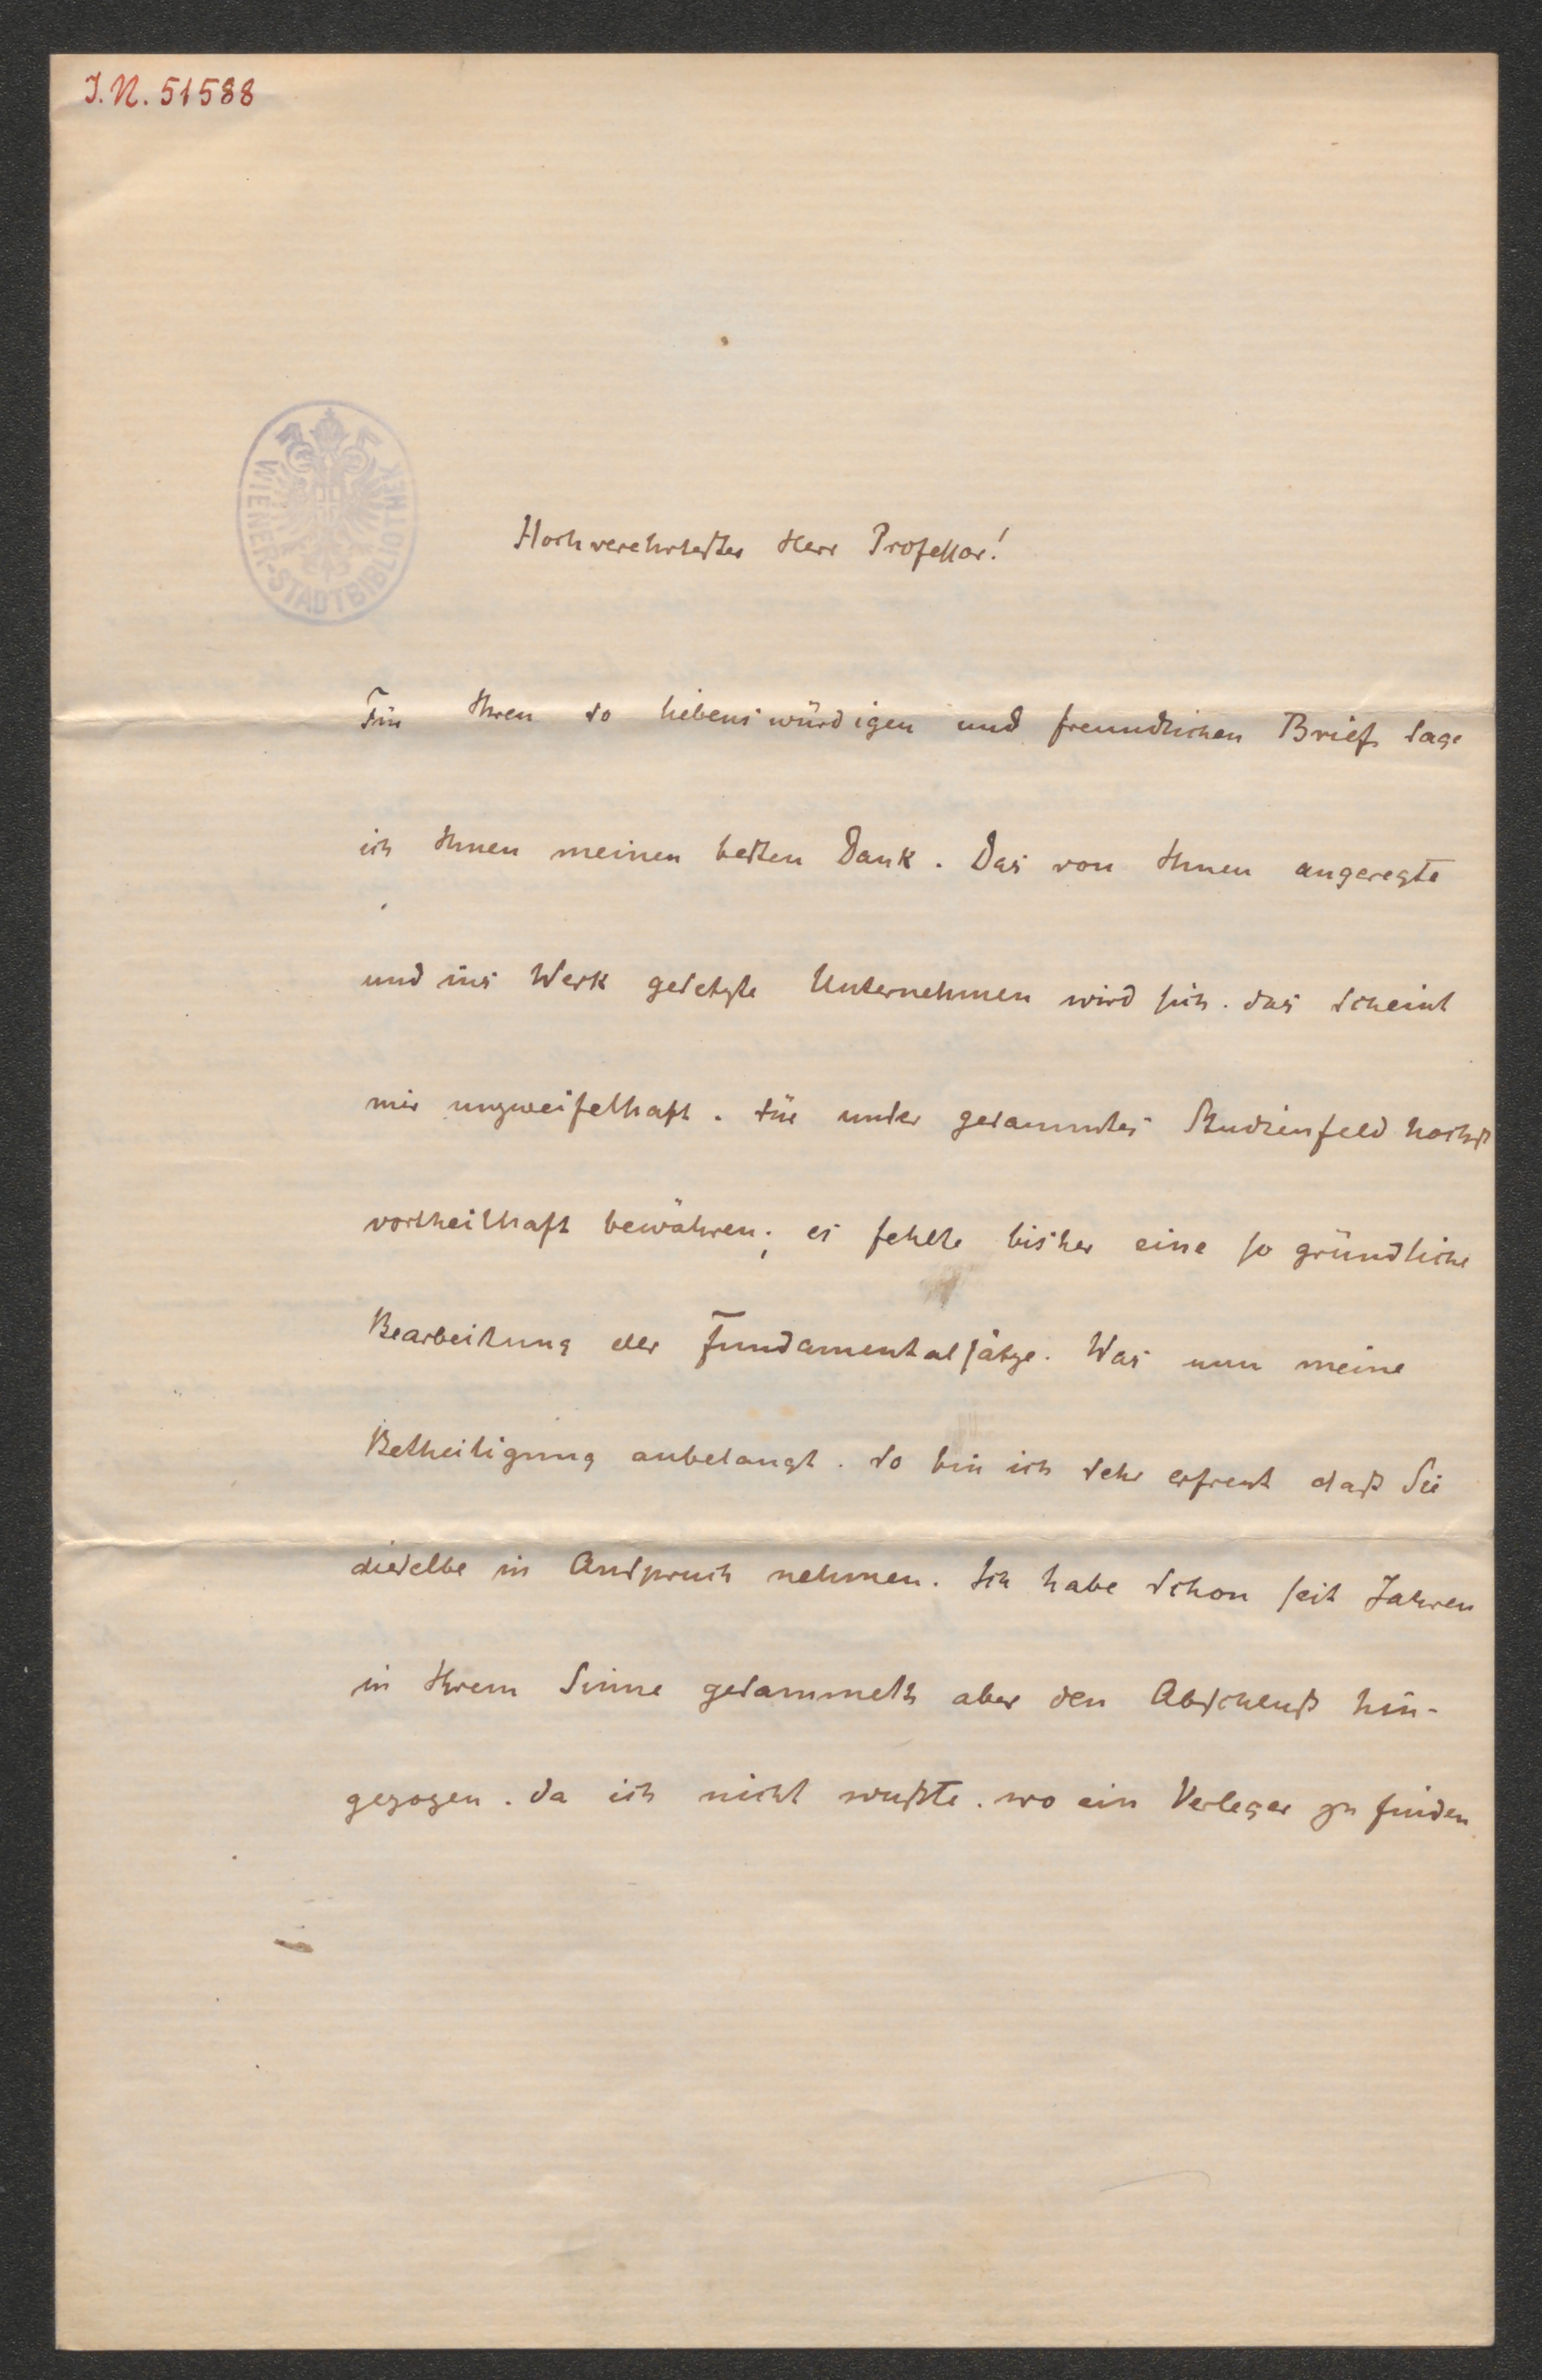 J.N. 51588
WIENER-STADTBIBLIOTHEK
Hochverehrtester Herr Professor!
Für Ihren so liebenswürdigen und freundlichen Brief sage
ich Ihnen meinen besten Dank. Das von Ihnen angeregte
und ins Werk gesetzte Unternehmen wird sich. das scheint
mir unzweifelhaft. für unser gesammtes Studienfeld höchst
vortheilhaft bewähren; es fehlte bisher eine so gründliche
Bearbeitung der Fundamentalsätze. Was nun meine
Betheiligung anbelangt. so bin ich sehr erfreut daß Sie
dieselbe in Anspruch nehmen. Ich habe schon seit Jahren
in Ihrem Sinne gesammelt aber den Abschluß hin-
gezogen. da ich nicht wußte. wo ein Verleger zu finden